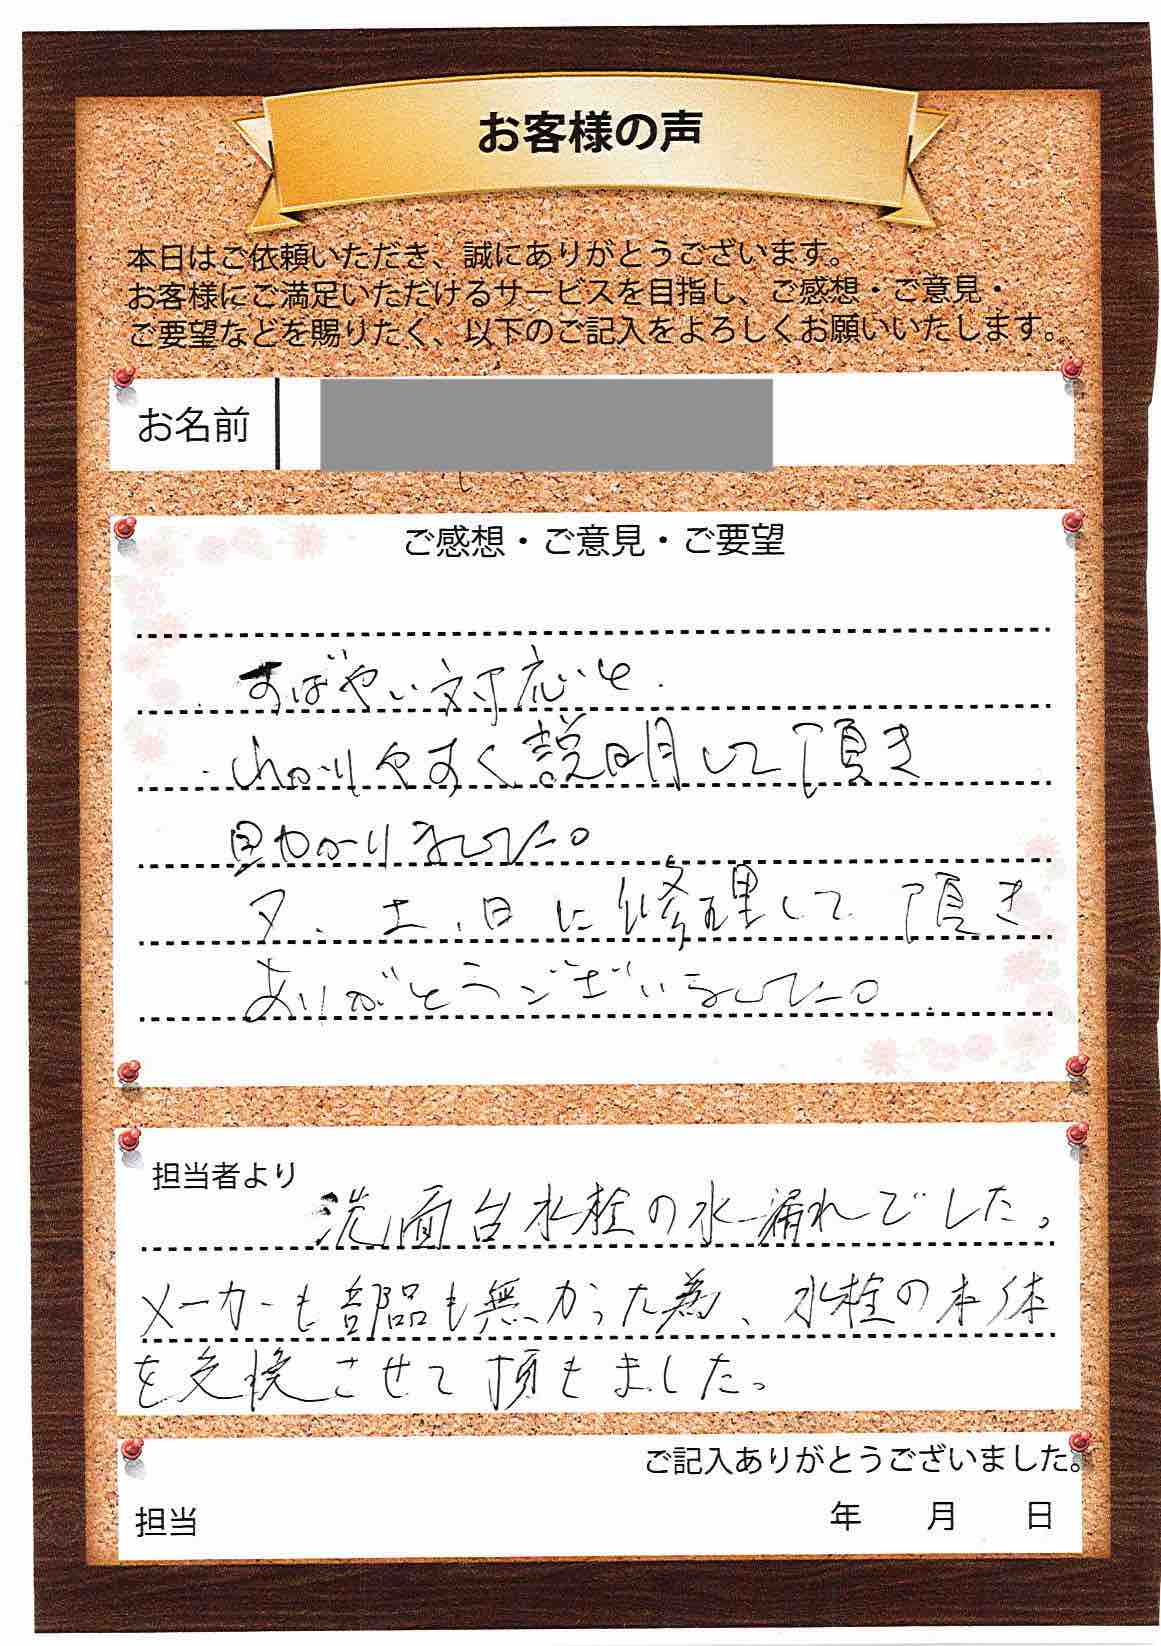 お客様の声
本日はご依頼いただき、誠にありがとうございます。
お客様にご満足いただけるサービスを目指し、ご感想・ご意見・
ご要望などを賜りたく、以下のご記入をよろしくお願いいたします。
お名前
ご感想・ご意見・ご要望
すばやい対応と
わかりやすく説明して頂き
助かりました。
又、土、日に修理して頂き
ありがとうございました。
担当者より
洗面台水栓の水漏れでした。
メーカーも部品も無かった為、水栓の本体
を交換させて頂きました。
ご記入ありがとうございました。
担当 年 月 日